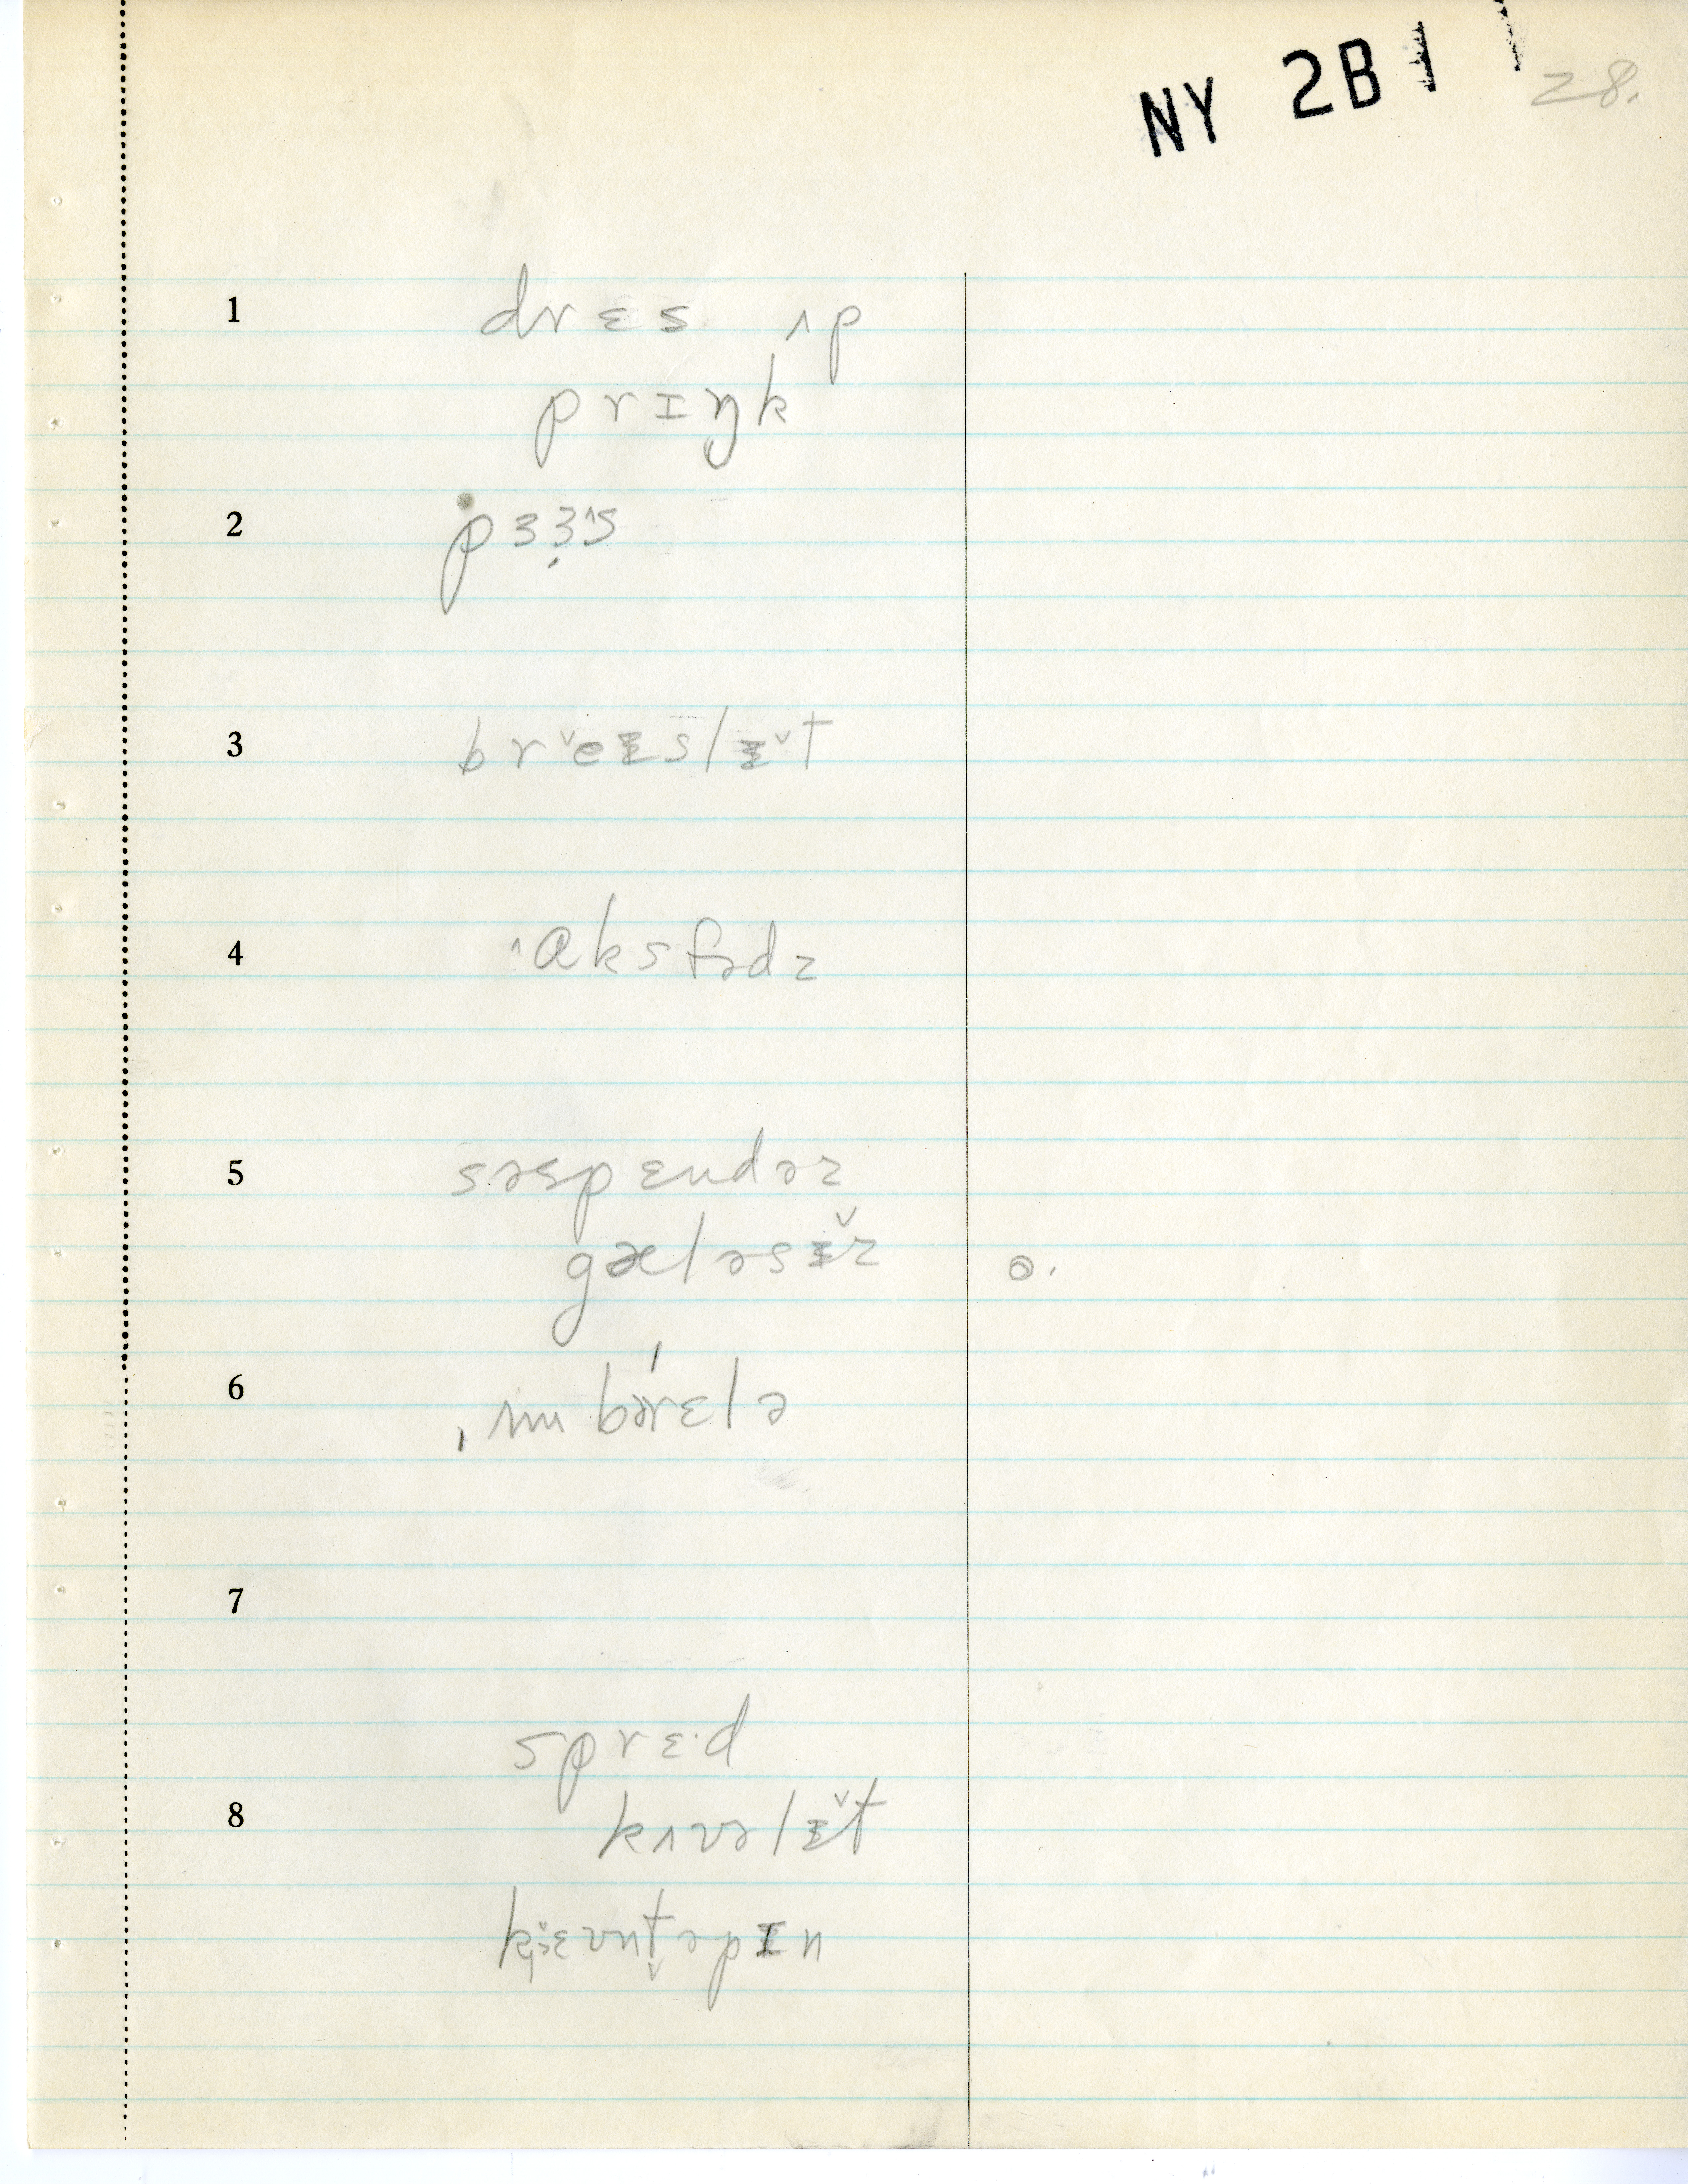 NY 2B 1
28.
1 drɛs ʌp
prɪŋk
2 pɜɜ̣^s
3 brˇeɪslɪˇt
4 ^aksfədz
5 səspɛndəz
gæləsɪ̌z o.
6 ˌʌmbə́rɛlə
7
sprɛ·d
8 kʌvəlɪ̌t